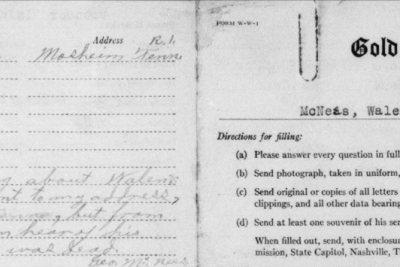 Address R.1.
Mosheim Tenn
about Walen
to my address,
but from
hear of his
was dead.
Geo McNees
FORM W-W-1
Gold
McNees, Wale
Directions for filling:
(a) Please answer every question in full
(b) Send photograph, taken in uniform,
(c) Send original or copies of all letters
clippings, and all other data bearing
(d) Send at least one souvenir of his se
When filled out, send, with enclosu
mission, State Capitol, Nashville, T